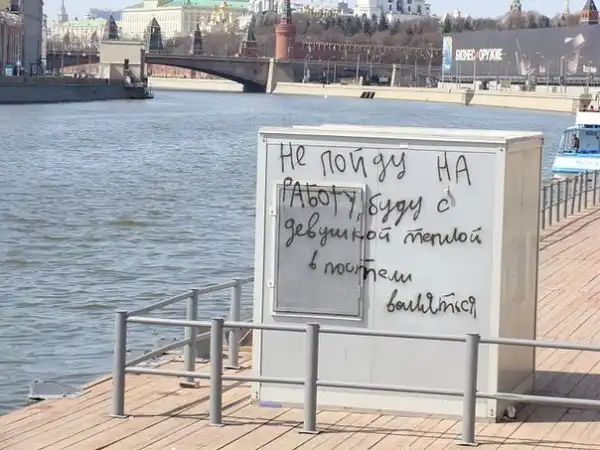 БИЗНЕС ОРУЖИЕ
Не пойду на
РАБОТУ, буду с
девушкой теплой
в постели
валяться